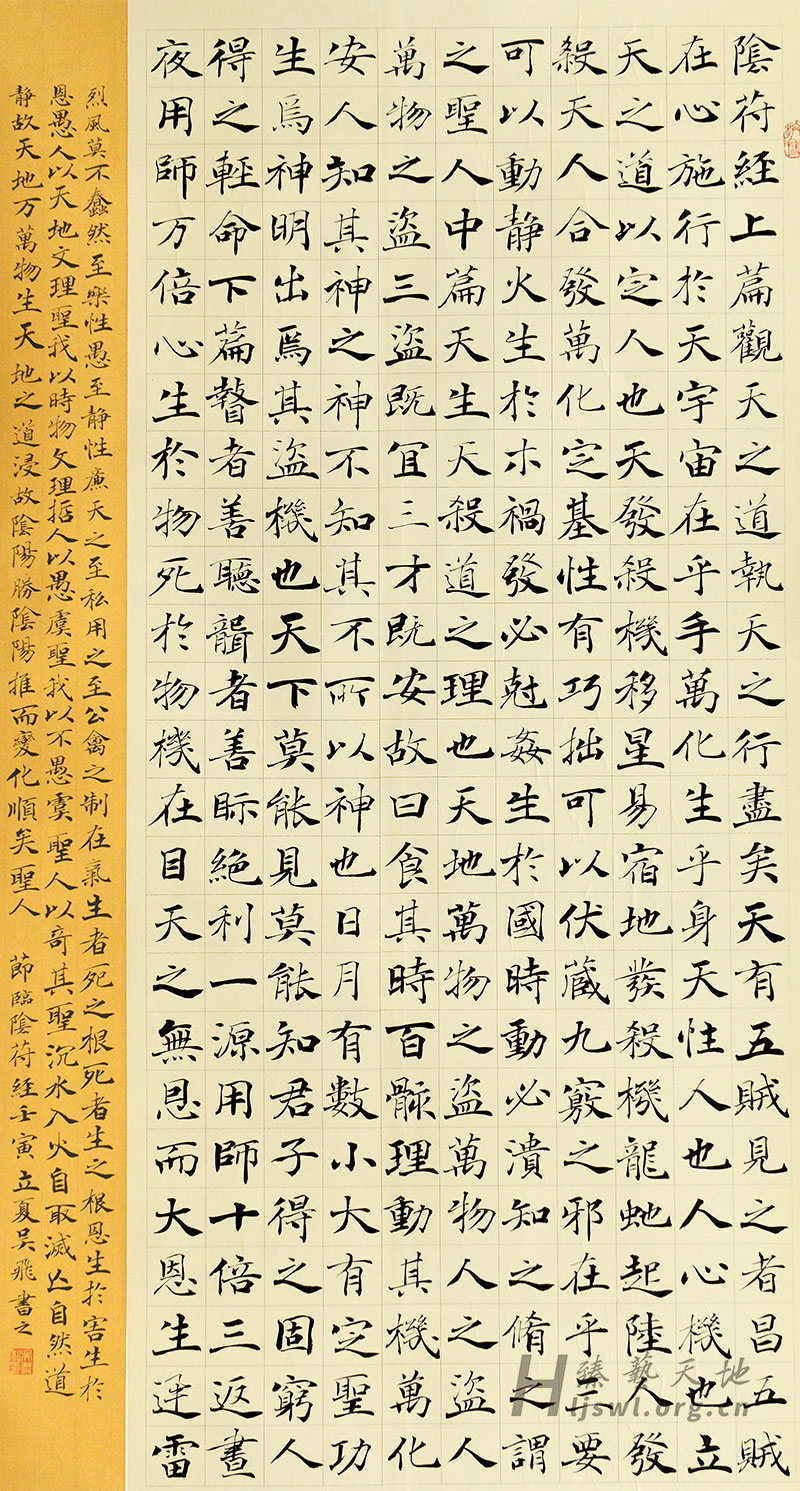 陰苻經上篇觀天之道執天之行盡矣天有五賊見之者昌五賊
在心施行於天宇宙在乎手萬化生乎身天性人也人心機也立
天之道以定人也天發殺機移星易宿地發殺機龍虵起陸人發
殺天人合發萬化定基性有巧拙可以伏藏九竅之邪在乎三要
可以動静火生於木禍發必尅姦生於國時動必潰知之脩之謂
之聖人中篇天生天殺道之理也天地萬物之盜萬物人之盜人
萬物之盜三盜既宜三才既安故曰食其時百骸理動其機萬化
安人知其神之神不知其不所以神也日月有數小大有定聖功
生焉神明出焉其盜機也天下莫能見莫能知君子得之固窮人
得之輕命下篇瞽者善聽聾者善眎絕利一源用師十倍三返晝
夜用師万倍心生於物死於物機在目天之無恩而大恩生迅雷
烈風莫不蠢然至樂性愚至静性廉天之至私用之至公禽之制在氣生者死之根死者生之根恩生於害生於
恩愚人以天地文理聖我以時物文理哲人以愚虞聖我以不愚虞聖人以奇其聖沉水入火自取滅亡自然道
静故天地万萬物生天地之道浸故陰陽勝陰陽推而變化順矣聖人 節臨陰苻經壬寅立夏吴飛書之
臻藝天地
Hljswl.org.cn